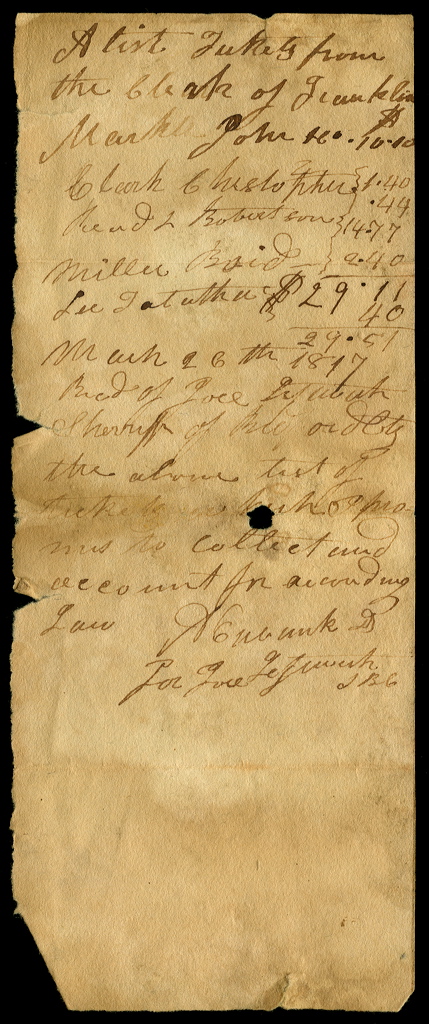 A list Tickets from
the Clerk of Franklin
Markle John $10.10
Clark Christopher 1.40
Read & Robertson .44
14.77
Miller Boid 2.40
Lee $29.11
40
29.51
March 26th 1817
Recd of Joel
Sheriff of County
the above list of
Tickets which I pro-
mis to collect and
account for according
Law
A Eubank D
For Joel
SBC